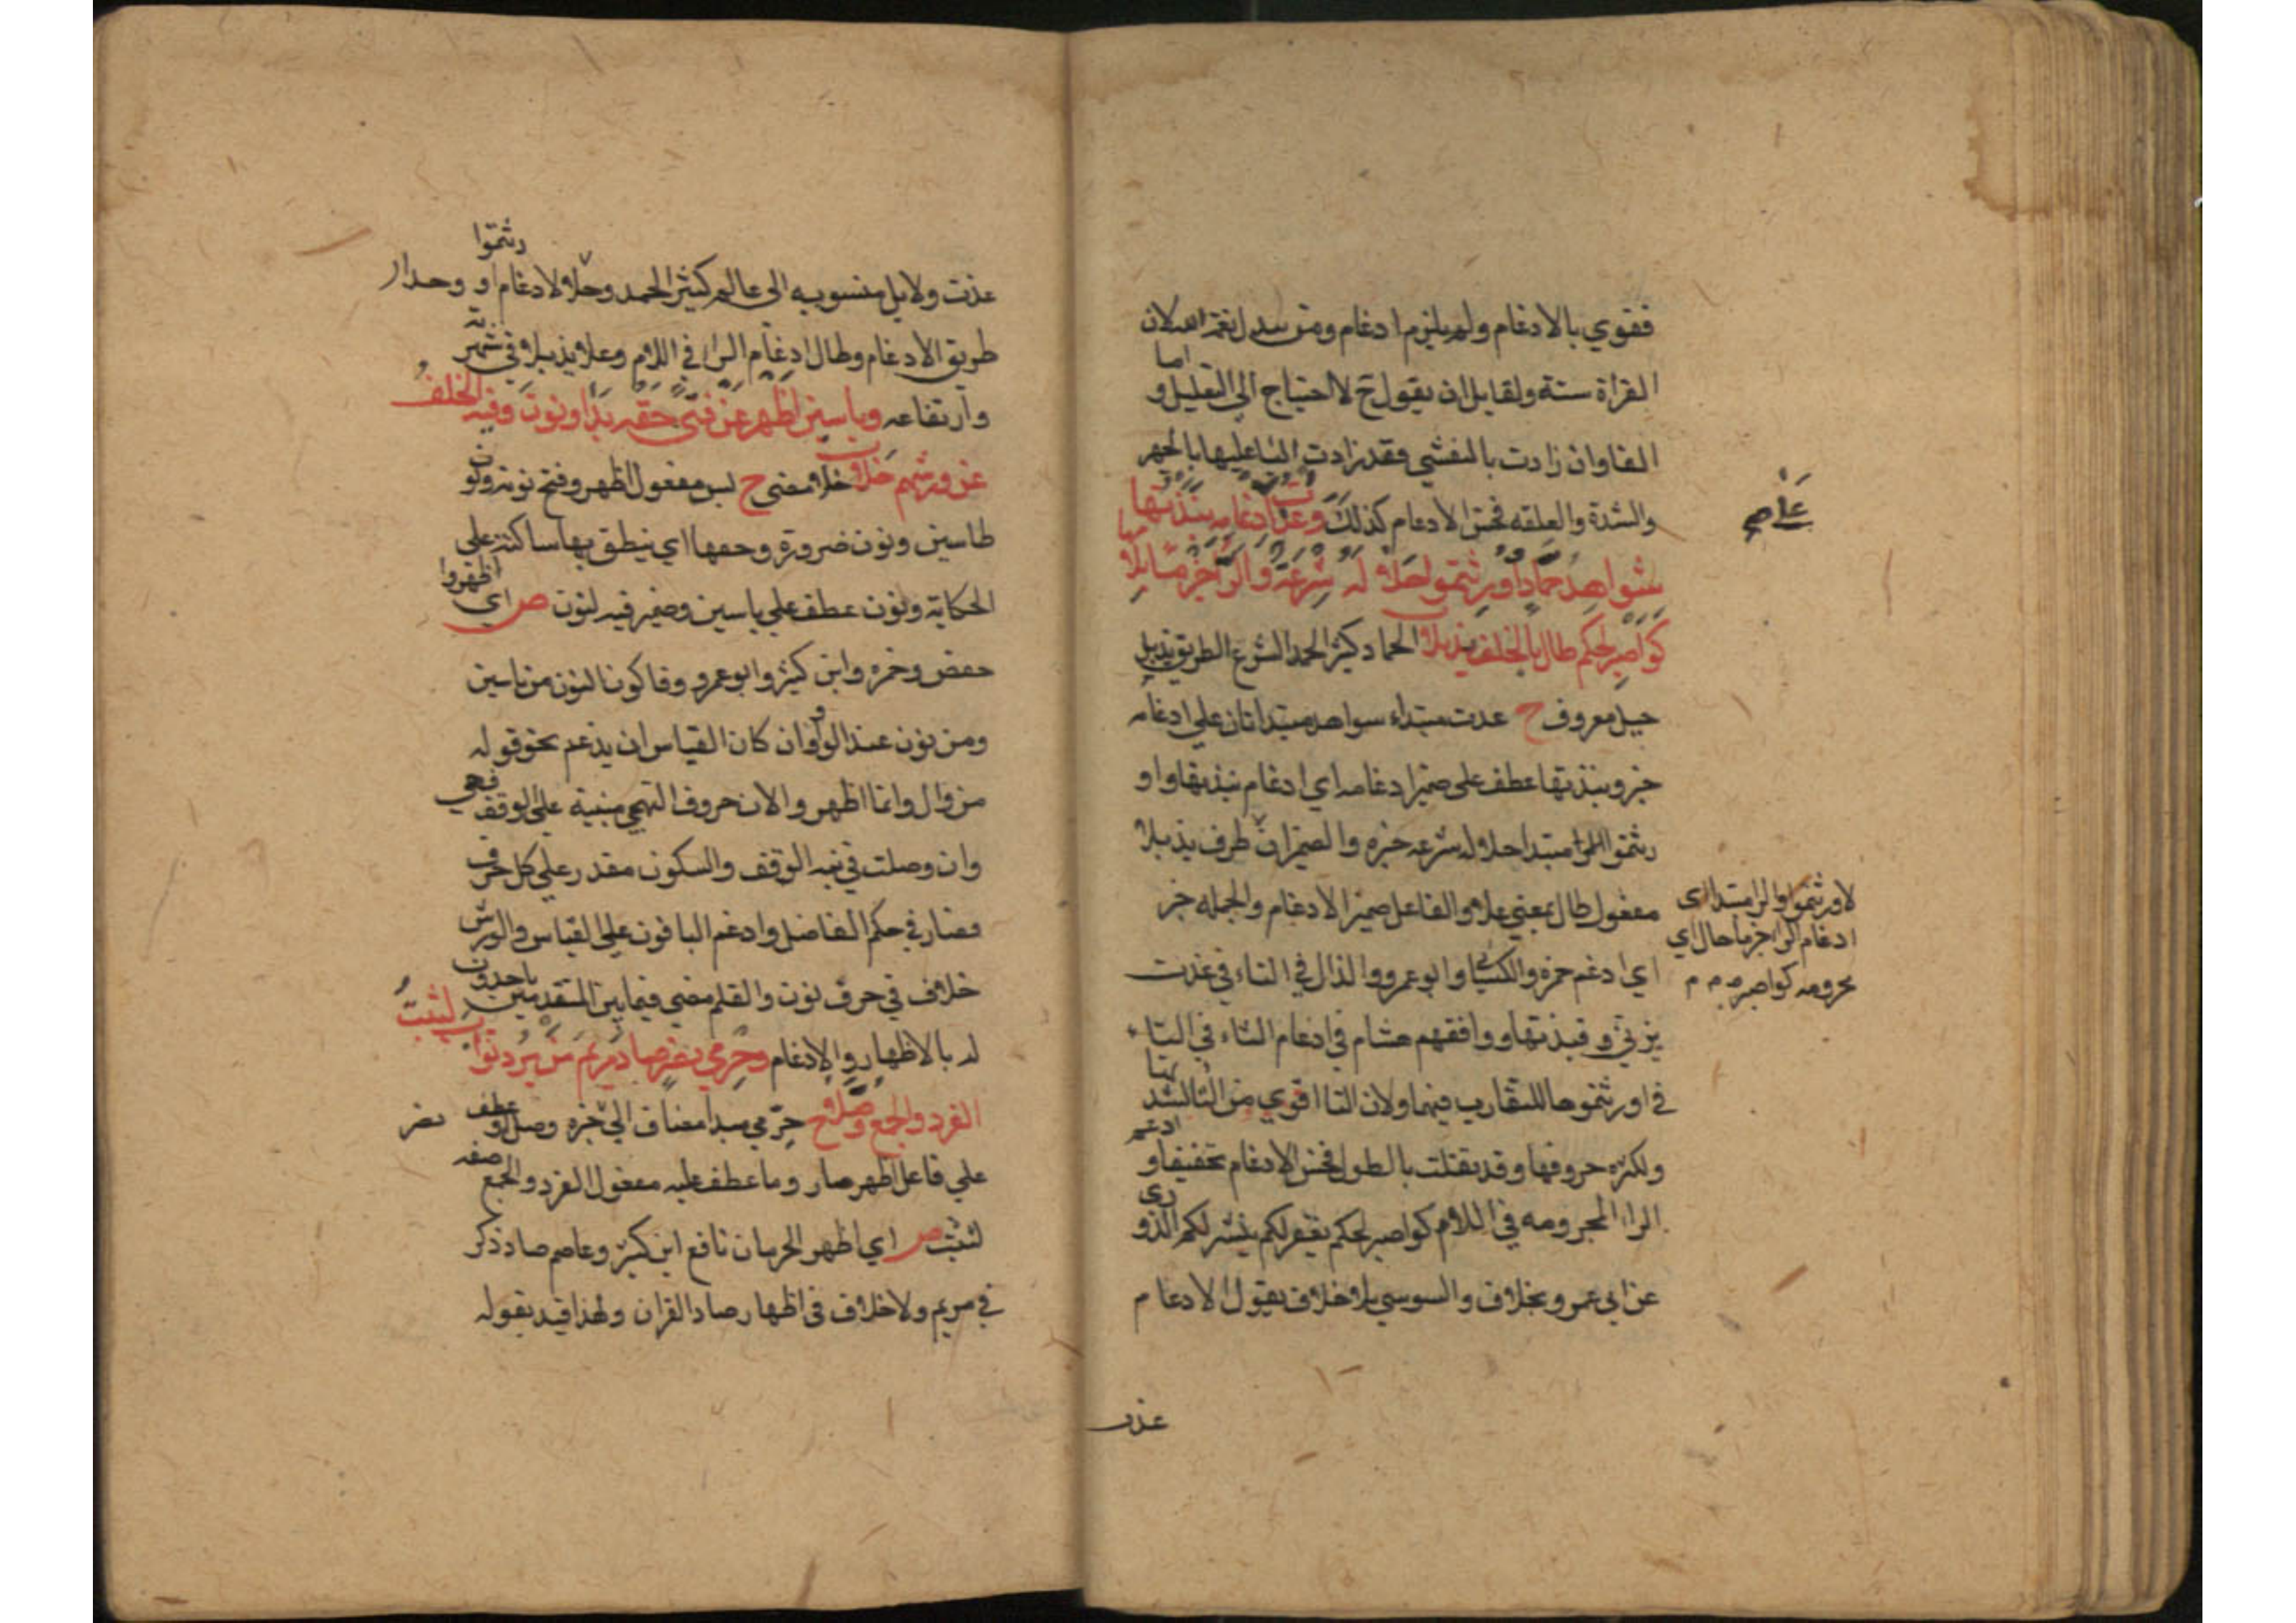 فقوي بالادغام ولم يلزم ادغام ومن يبدل نعمة الله لان
القراة سنة ولقايل ان يقول ح لا احتياج الى التعليل و اما
الفا وان زادت بالتفشي فقد زادت البا عليها بالجهر
والشدة والعلقه فحسن الادعام كذلك وعذت على ادغامه ونبذتها
شواهد حماد واورثتموا حلا له شرعه والرا جزما بلامها
كواصبر لحكم طال بالخلف يذبلا الحماد كثير الحمد الشرع الطريق يذبل
جبل معروف ح عدت مبتداء سواهد مبتدا ثان علي ادغامه
خبر ونبذتها عطف على ضمير ادغامه اي ادغام نبذتها واو
رثتموا مبتدا حلا له شرعه خبره والضمير ان ظرف يذبلا
مفعول طال بمعني علا والفاعل ضمير الادغام والجمله خبر
اي ادغم حمزه والكسائي وابو عمرو الذال في التاء في عذت
بربي و فنبذتها ووافقهم هشام في ادغام الثاء في التاء
في اورثتموها للتقارب فيهما ولان التا اقوي من الثا لشد تها
ولكثره حروفها وقد ثقلت بالطول فحسن الادغام تخفيفا و ادغم
الرا المجرومه في اللام كواصبر لحكم يغفر لكم ينشر لكم الدو ري
عن ابي عمرو بخلاف والسوسي بلا خلاف يقول الادعام
عذت
عاصم
لاورثتموا والرا مبتدا اي
ادغام الرا جزما حال اي
مجرومه كواصبر م م م
عذت ولايل منسوبه الى عالم كثير الحمد وحلا لادغام او رثتموا وحدار
طريق الادغام وطال ادغام الرا في اللام وعلا يذبلا في شهر ته
وارتفاعه وياسين اظهر عن فتى حقه بدا ونون وفيه الخلف
عن ورشهم خلا خلا مضى ح يس مفعول اظهر وفتح نونه ونو ن
طاسين ونون ضرورة وحقها اي ينطق بها ساكنة علي
الحكاية ونون عطف علي ياسين وضمير فيه لنون ص اي اظهروا
حفص وحمزه وابن كثير وابو عمرو وقالون النون من ياسين
ومن نون عند الواو وان كان القياس ان يدغم نحو قوله
من وال وانما اظهروا لان حروف التهجي مبنية على الوقف فهي
وان وصلت في نية الوقف والسكون مقدر علي كل حرف
فصار في حكم الفاصل وادغم الباقون على القياس ولورش
خلاف في حرف نون والقلم مضي فيما بين المتقدمين ياخذون
له بالاظهار والادغام وحرمي نصر صاد مريم من يرد ثواب لبثت
الفرد والجمع وصلا ح حرمي مبدا مضاف الى خبره وصل و عطف نصر
علي فاعل اظهر صار وما عطف عليه مفعول الفرد والجمع صفة
لبثت ص اي اظهر الحرميان نافع ابن كثير وعاصم صاد ذكر
في مريم ولا خلاف في اظهار صاد القران ولهذا قيد بقوله